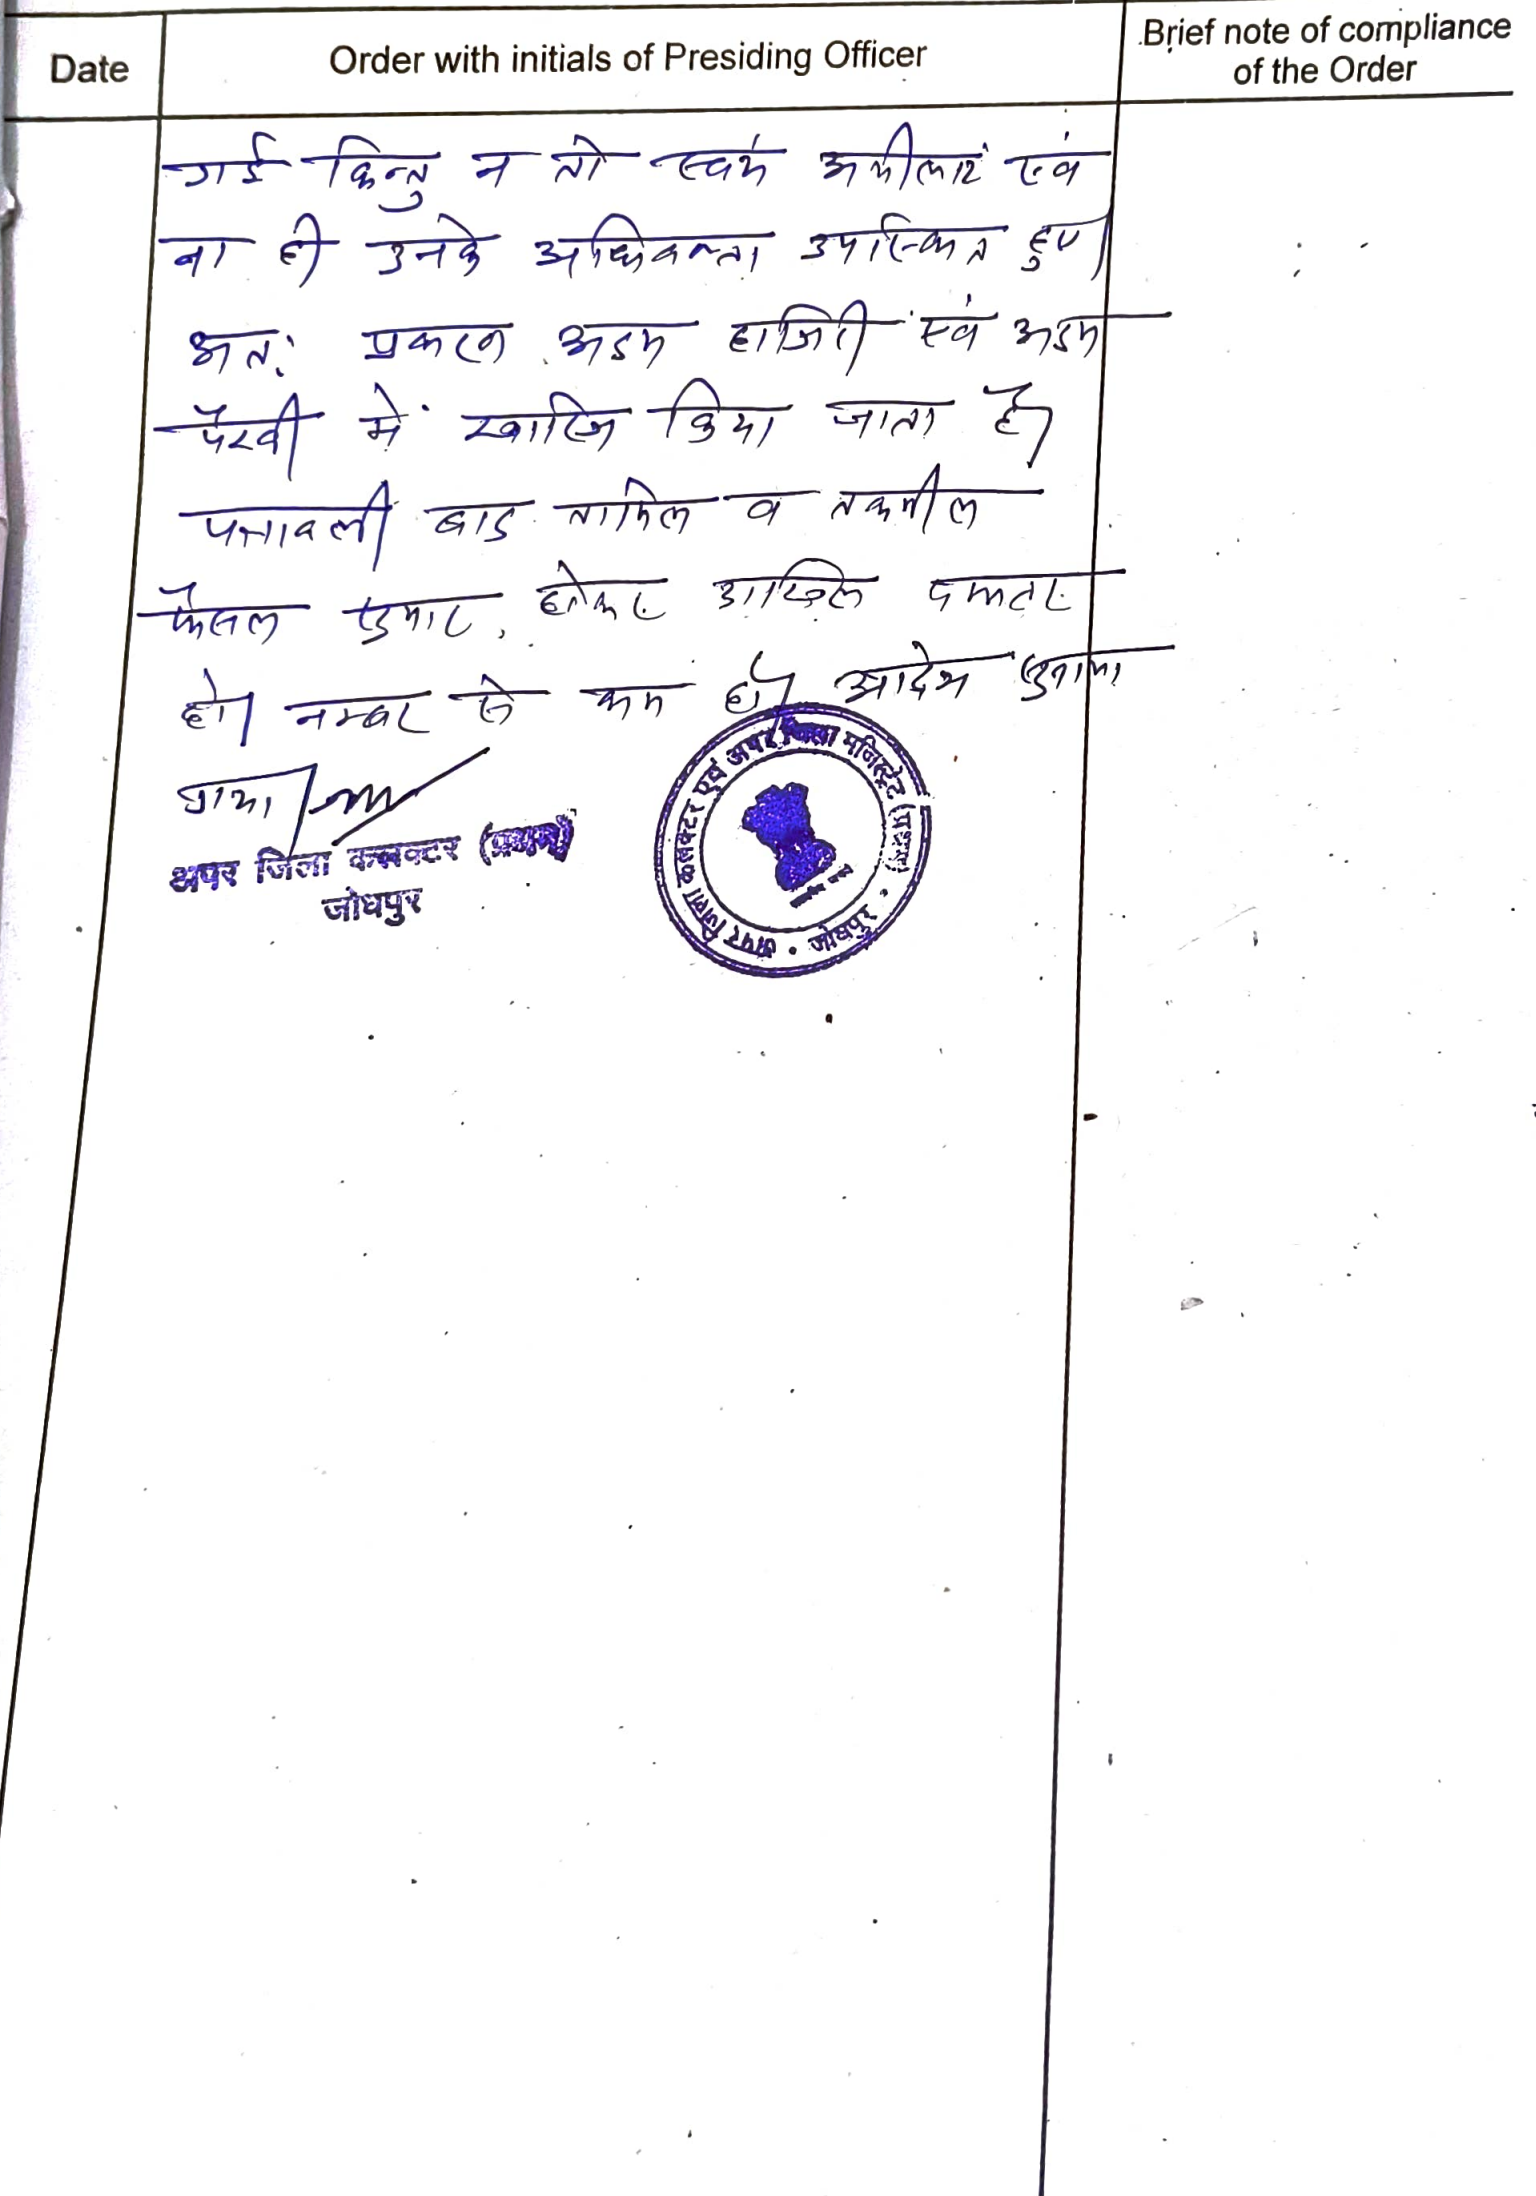 Date
Order with initials of Presiding Officer
Brief note of compliance
of the Order
गई किन्तु न तो स्वयं अपीलांट एवं
ना ही उनके अधिवक्ता उपस्थित हुए।
अतः प्रकरण अदम हाजिरी एवं अदम
पैरवी में खारिज किया जाता है।
पत्रावली बाद तामिल व तकमील
फैसल शुमार होकर दाखिल दफ्तर
हो। नम्बर से कम हो। आदेश सुनाया
गया।
अपर जिला कलक्टर (प्रथम)
जोधपुर
अपर जिला कलक्टर एवं अपर जिला मजिस्ट्रेट (प्रथम) • जोधपुर •